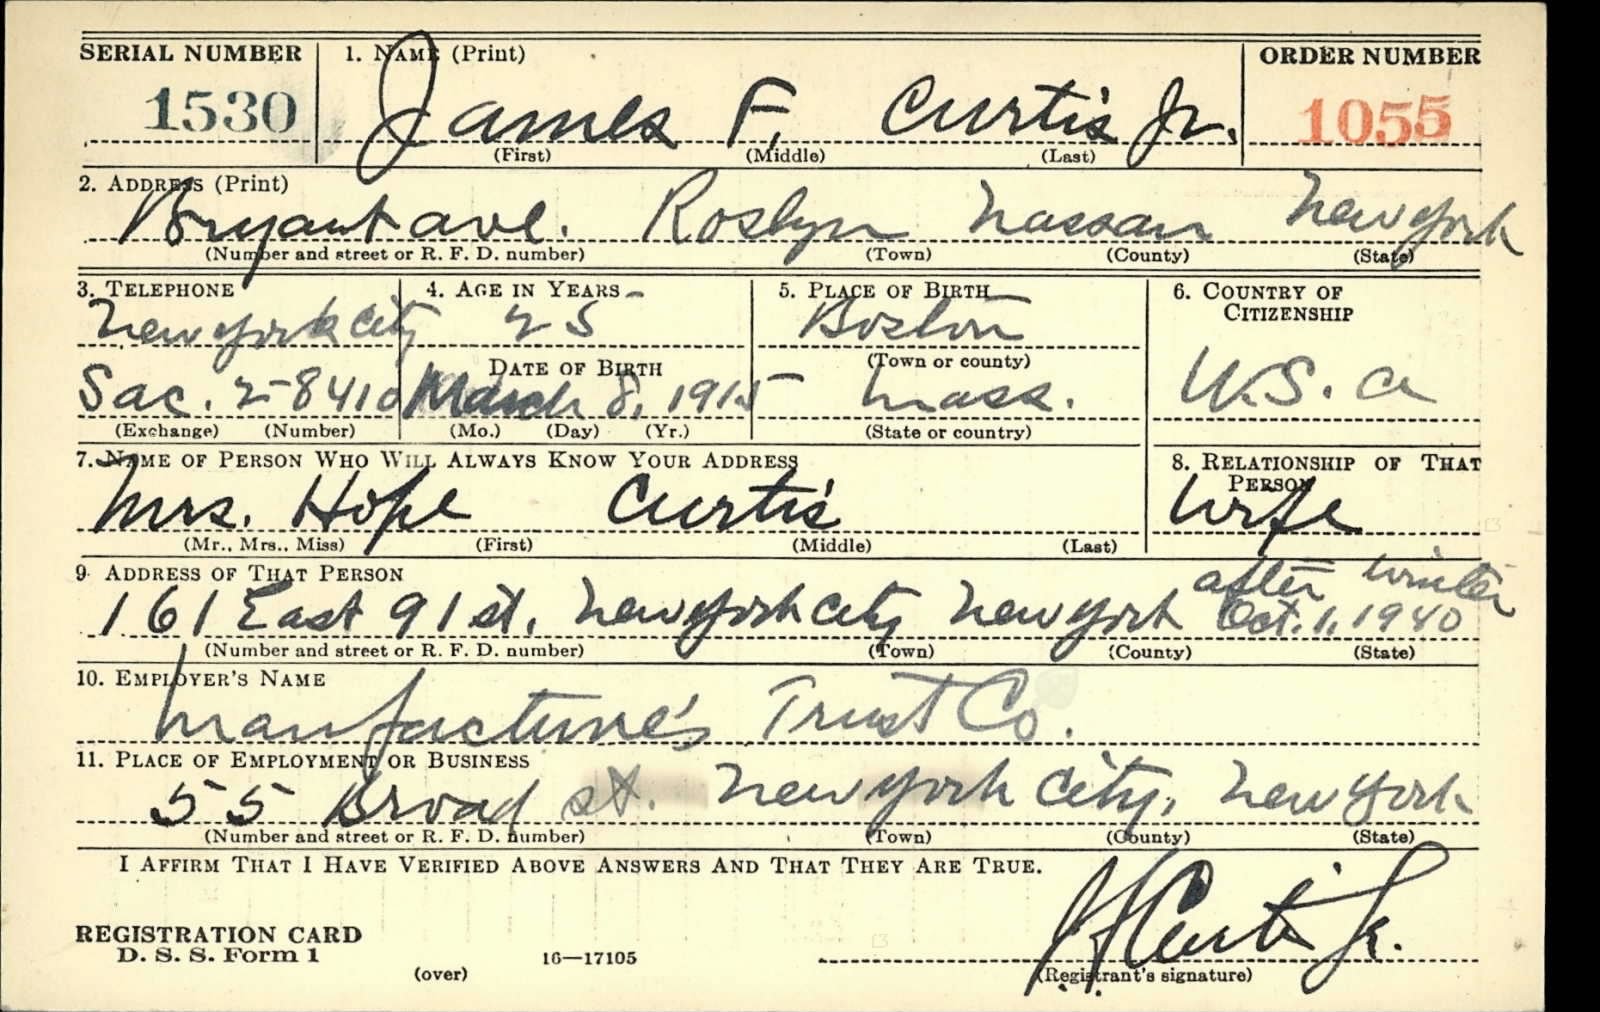 SERIAL NUMBER 1. NAME (Print) ORDER NUMBER
1530 James F. Curtis Jr. 1055
(First) (Middle) (Last)
2. ADDRESS (Print)
Bryant ave. Roslyn Nassau New York
(Number and street or R. F. D. number) (Town) (County) (State)
3. TELEPHONE 4. AGE IN YEARS 5. PLACE OF BIRTH 6. COUNTRY OF CITIZENSHIP
New York City 25 Boston
DATE OF BIRTH (Town or county)
Sac. 2-8410 March 8, 1915 Mass. U.S.a
(Exchange) (Number) (Mo.) (Day) (Yr.) (State or country)
7. NAME OF PERSON WHO WILL ALWAYS KNOW YOUR ADDRESS 8. RELATIONSHIP OF THAT PERSON
Mrs. Hope Curtis Wife
(Mr., Mrs., Miss) (First) (Middle) (Last)
9. ADDRESS OF THAT PERSON after winter
161 East 91 st. New York City New York Oct. 1, 1940
(Number and street or R. F. D. number) (Town) (County) (State)
10. EMPLOYER'S NAME
Manufacture's Trust Co.
11. PLACE OF EMPLOYMENT OR BUSINESS
55 Broad st. New York City, New York
(Number and street or R. F. D. number) (Town) (County) (State)
I AFFIRM THAT I HAVE VERIFIED ABOVE ANSWERS AND THAT THEY ARE TRUE.
J F Curtis Jr.
REGISTRATION CARD
D. S. S. Form 1
(over) 16—17105 (Registrant's signature)